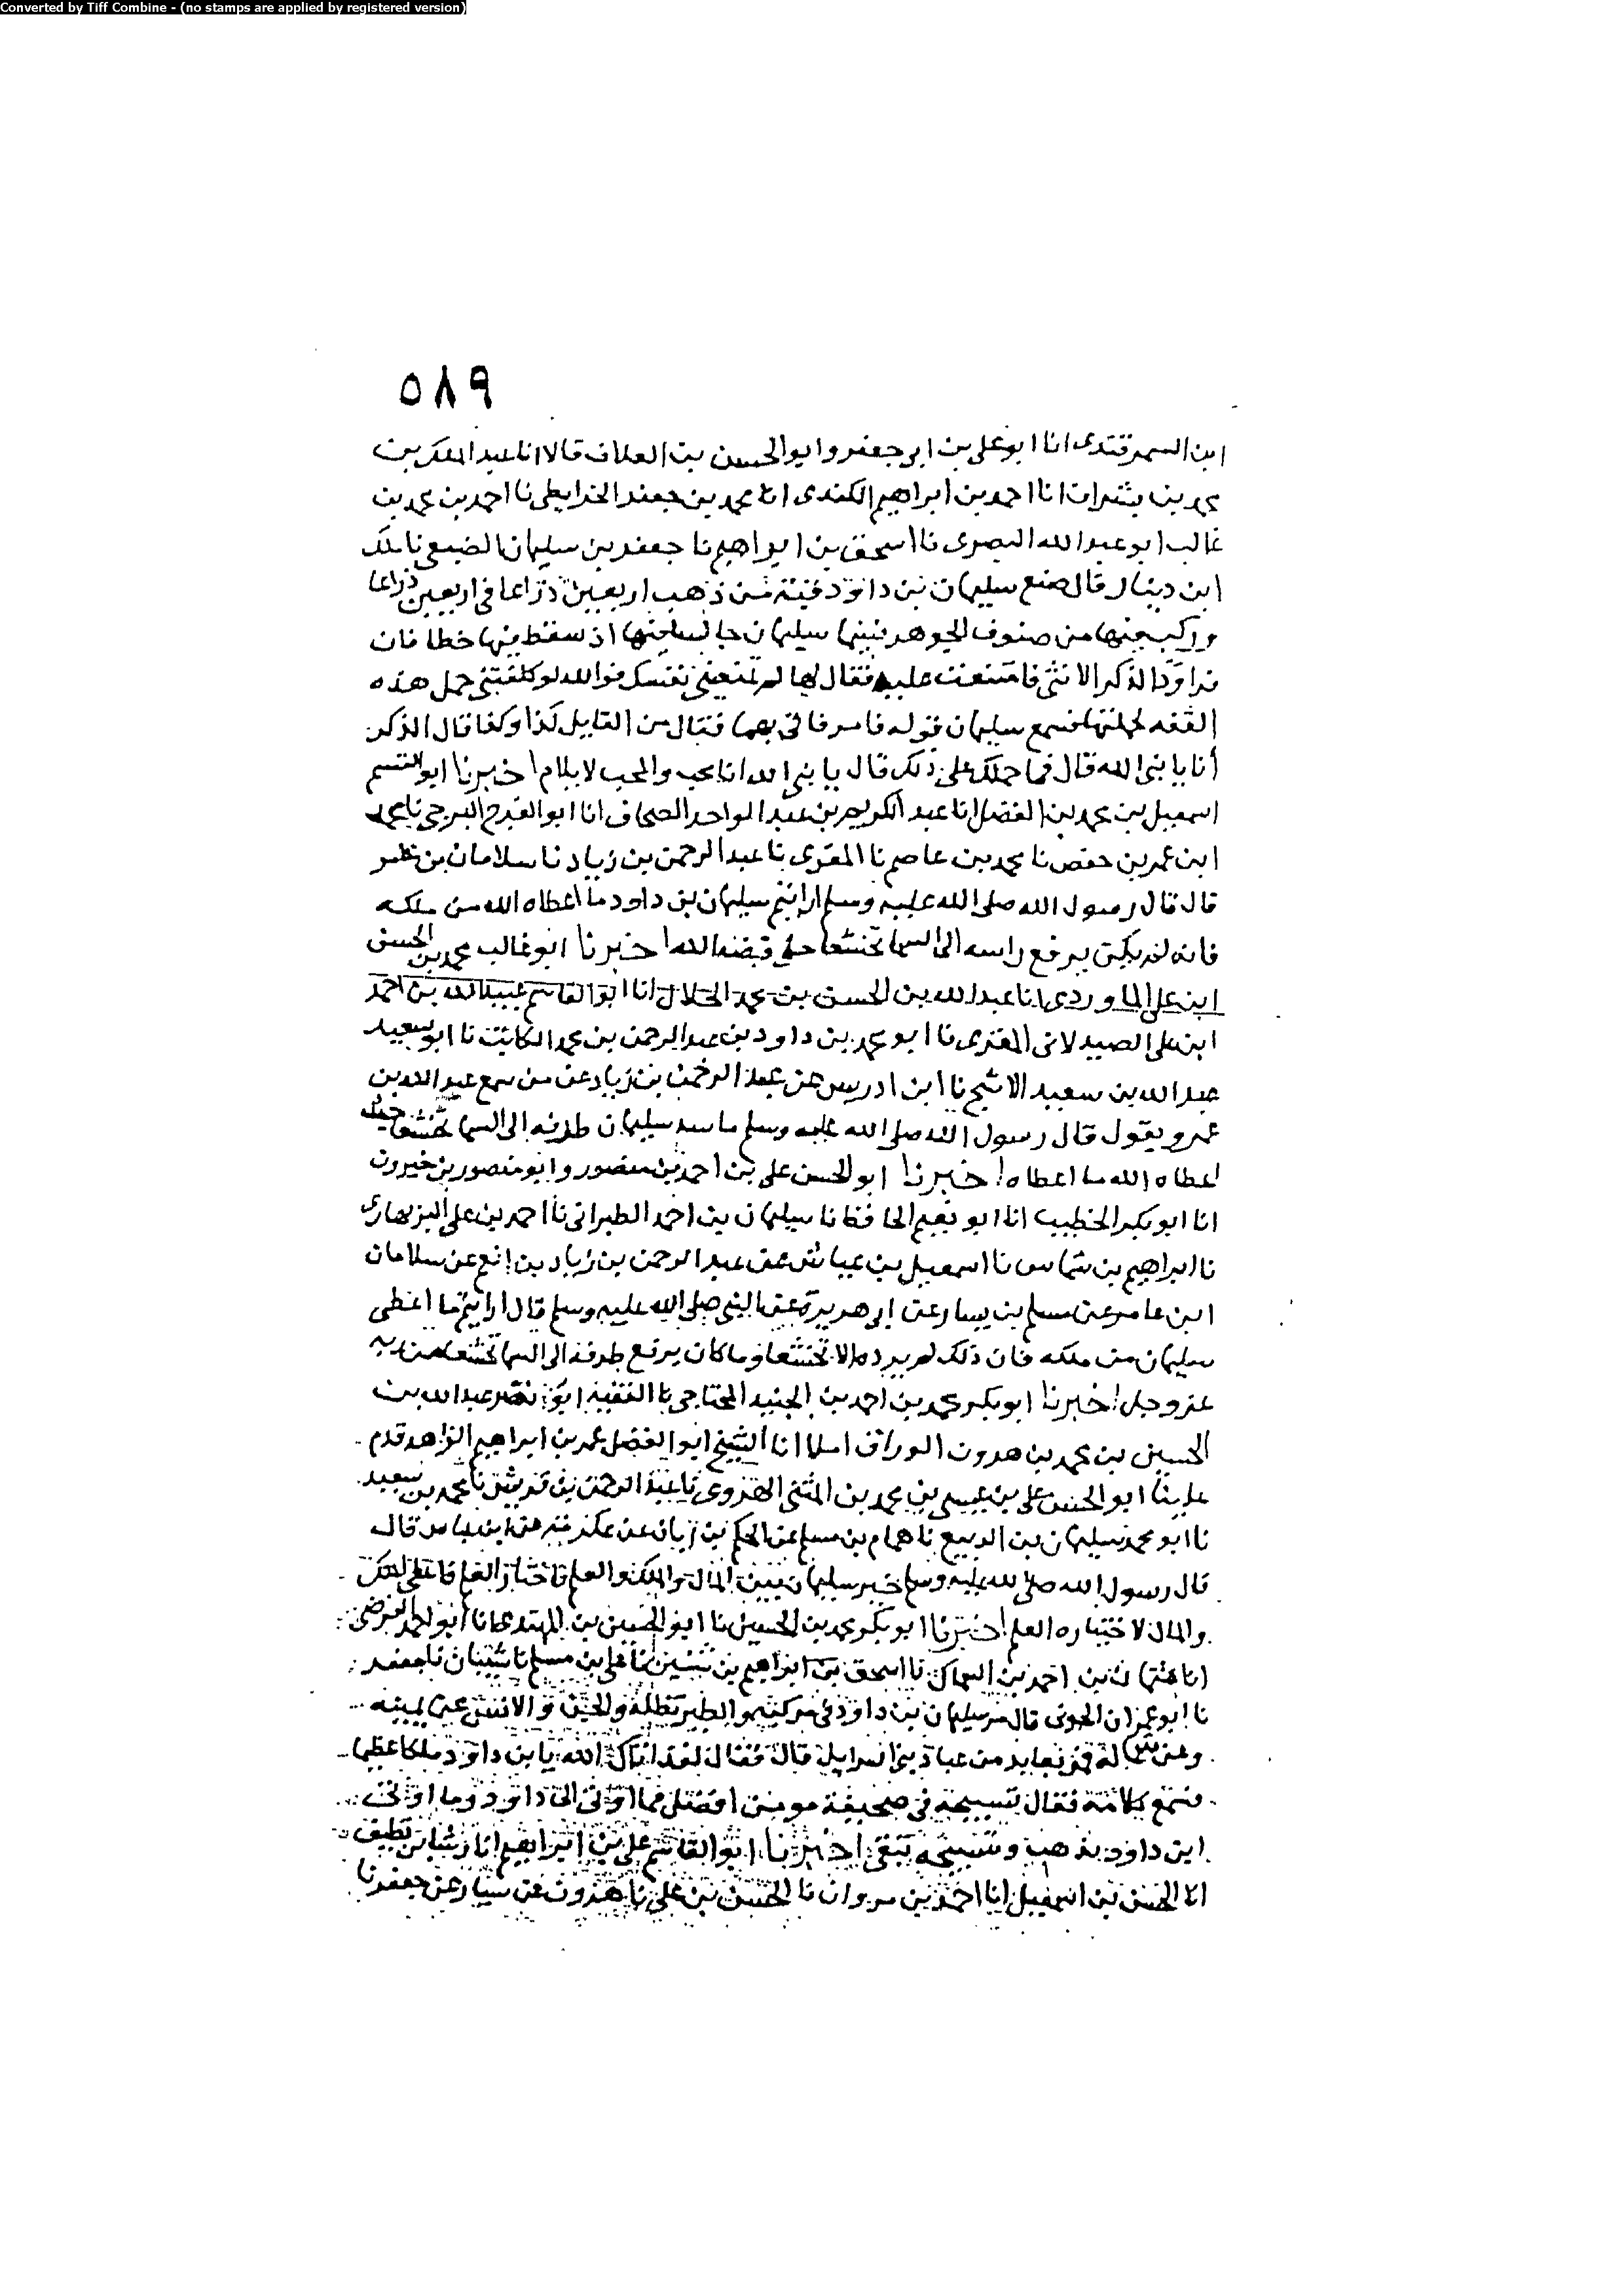 Converted by Tiff Combine - (no stamps are applied by registered version)
٥٨٩
ابن السمرقندى انا ابو على بن ابى جعفر وابو الحسن بن العلاف قالا انا عبد الملك بن
محمد بن بشران انا احمد بن ابراهيم الكندى انا محمد بن جعفر الخرايطى نا احمد بن محمد بن
غالب ابو عبد الله البصرى نا اسحق بن ابراهيم نا جعفر بن سليمان الضبعى نا ملك
ابن دينار قال صنع سليمان بن داود قبة من ذهب اربعين ذراعا فى اربعين ذراعا
وركب فيها من صنوف الجوهر فبينما سليمان جالسا تحتها اذ سقط فيها خطافان
فراود الذكر الانثى فامتنعت عليه فقال لها لم تمنعينى نفسك فوالله لو كلفتنى حمل هذه
القبه لحملتها فسمع سليمان قوله فامر فاتى بهما فقال من القايل كذا وكذا قال الذكر
أنا يا نبى الله قال فما حملك على ذلك قال يا نبى الله انا محب والمحب لا يلام اخبرنا ابو القسم
اسمعيل بن محمد بن الفضل انا عبد الكريم بن عبد الواحد الصحاف انا ابو الفرج البرجى نا محمد
ابن عمر بن حفص نا محمد بن عاصم نا المقرى نا عبد الرحمن بن زياد نا سلامان بن عامر
قال قال رسول الله صلى الله عليه وسلم ارايتم سليمان بن داود ما اعطاه الله من ملكه
فانه لم يكن يرفع راسه الى السما تخشعا حتى قبضه الله اخبرنا ابو غالب محمد بن الحسن
ابن على الماوردى انا عبد الله بن الحسن بن محمد الخلال انا ابو القاسم عبيد الله بن احمد
ابن على الصيدلانى المقرى نا ابو محمد بن داود بن عبد الرحمن بن محمد الكاتب نا ابو سعيد
عبد الله بن سعيد الاشج نا ابن ادريس عن عبد الرحمن بن زياد عن من سمع عبد الله بن
عمرو يقول قال رسول الله صلى الله عليه وسلم ما سد سليمان طرفه الى السما تخشعا حيث
اعطاه الله ما اعطاه اخبرنا ابو الحسن على بن احمد بن منصور وابو منصور بن خيرون
انا ابو بكر الخطيب انا ابو نعيم الحافظ نا سليمان بن احمد الطبرانى نا احمد بن على البربهارى
نا ابراهيم بن شماس نا اسمعيل بن عياش عن عبد الرحمن بن زياد بن انعم عن سلامان
ابن عامر عن مسلم بن يسار عن ابى هريرة عن النبى صلى الله عليه وسلم قال ارايتم ما اعطى
سليمان من ملكه فان ذلك لم يرده الا تخشعا وما كان يرفع طرفه الى السما تخشعا من ربه
عز وجل اخبرنا ابو بكر محمد بن احمد بن الجنيد المحتاجى نا الفقيه ابو نصر عبد الله بن
الحسين بن محمد بن هرون الوراق املا انا الشيخ ابو الفضل عمر بن ابراهيم الزاهد قدم
علينا ابو الحسن على بن عيسى بن محمد بن المثنى الهروى نا عبد الرحمن بن قريش نا محمد بن سعيد
نا ابو محمد سليمان بن الربيع نا همام بن مسلم عن الحكم بن زيان عن عكرمه عن ابن عباس قال
قال رسول الله صلى الله عليه وسلم خير سليمان بين المال والملك والعلم فاختار العلم فاعطى الملك
والمال لاختياره العلم اخبرنا ابو بكر محمد بن الحسين نا ابو الحسين بن المهتدى انا ابو احمد الفرضى
انا عثمان بن احمد بن السماك نا اسحق بن ابراهيم بن سنين نا على بن مسلم نا سيار نا جعفر
نا ابو عمران الجونى قال مر سليمان بن داود فى مركبه والطير تظله والجن والانس عن يمينه
وعن شماله فمر بعابد من عباد بنى اسرايل قال فقال لقد اتاك الله يا بن داود ملكا عظيما
فسمع كلامه فقال لتسبيحة فى صحيفة مومن افضل مما اوتى ابن داود وما اوتى
ابن داود يذهب وتسبيحه تبقى اخبرنا ابو القاسم على بن ابراهيم انا رشا بن نظيف
انا الحسن بن اسمعيل انا احمد بن مروان نا الحسن بن على نا هرون عن سيار عن جعفر نا